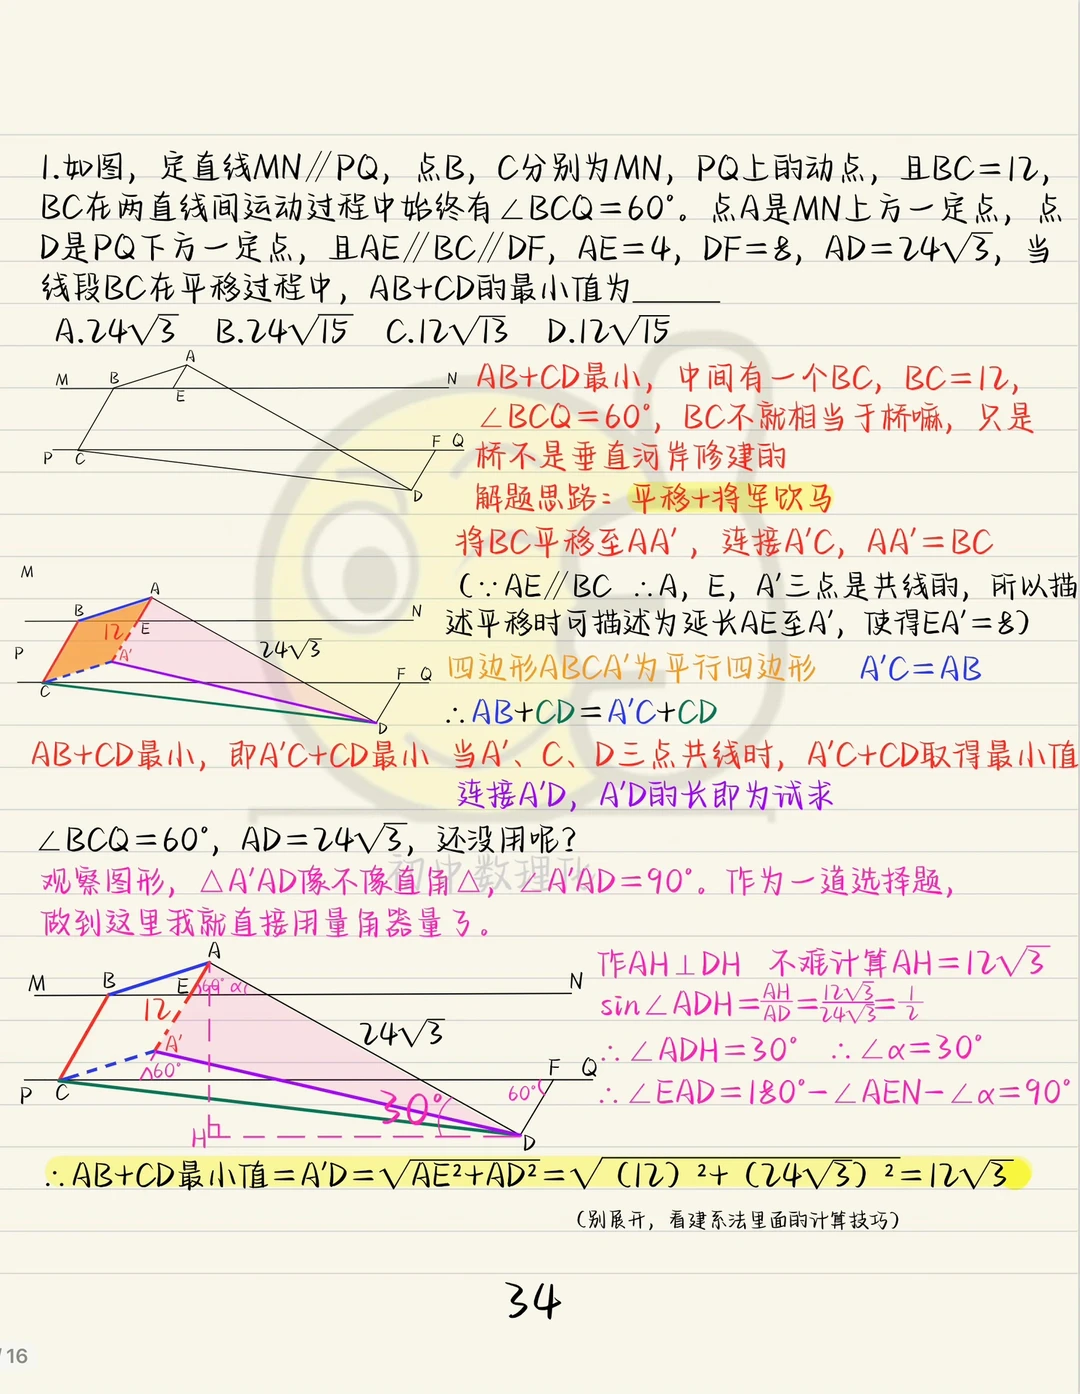 1.如图，定直线MN∥PQ，点B，C分别为MN，PQ上的动点，且BC=12，
BC在两直线间运动过程中始终有∠BCQ=60°。点A是MN上方一定点，点
D是PQ下方一定点，且AE∥BC∥DF，AE=4，DF=8，AD=24√3，当
线段BC在平移过程中，AB+CD的最小值为______
A.24√3 B.24√15 C.12√13 D.12√15
M B A E N
P C F Q D
AB+CD最小，中间有一个BC，BC=12，
∠BCQ=60°，BC不就相当于桥嘛，只是
桥不是垂直河岸修建的
解题思路：平移+将军饮马
将BC平移至AA'，连接A'C，AA'=BC
(∵AE∥BC ∴A，E，A'三点是共线的，所以描
述平移时可描述为延长AE至A'，使得EA'=8)
M A B N
12 E 24√3
P A' F Q
C D
四边形ABCA'为平行四边形 A'C=AB
∴AB+CD=A'C+CD
AB+CD最小，即A'C+CD最小 当A'、C、D三点共线时，A'C+CD取得最小值
连接A'D，A'D的长即为试求
∠BCQ=60°，AD=24√3，还没用呢？
初中数理化
观察图形，△A'AD像不像直角△，∠A'AD=90°。作为一道选择题，
做到这里我就直接用量角器量了。
A
M B E 60° α N
12 24√3
A'
60° F Q
P C 60°
30°
H D
作AH⊥DH 不难计算AH=12√3
sin∠ADH=AH/AD=12√3/24√3=1/2
∴∠ADH=30° ∴∠α=30°
∴∠EAD=180°-∠AEN-∠α=90°
∴AB+CD最小值=A'D=√AE²+AD²=√(12)²+(24√3)²=12√3
(别展开，看建系法里面的计算技巧)
34
/16